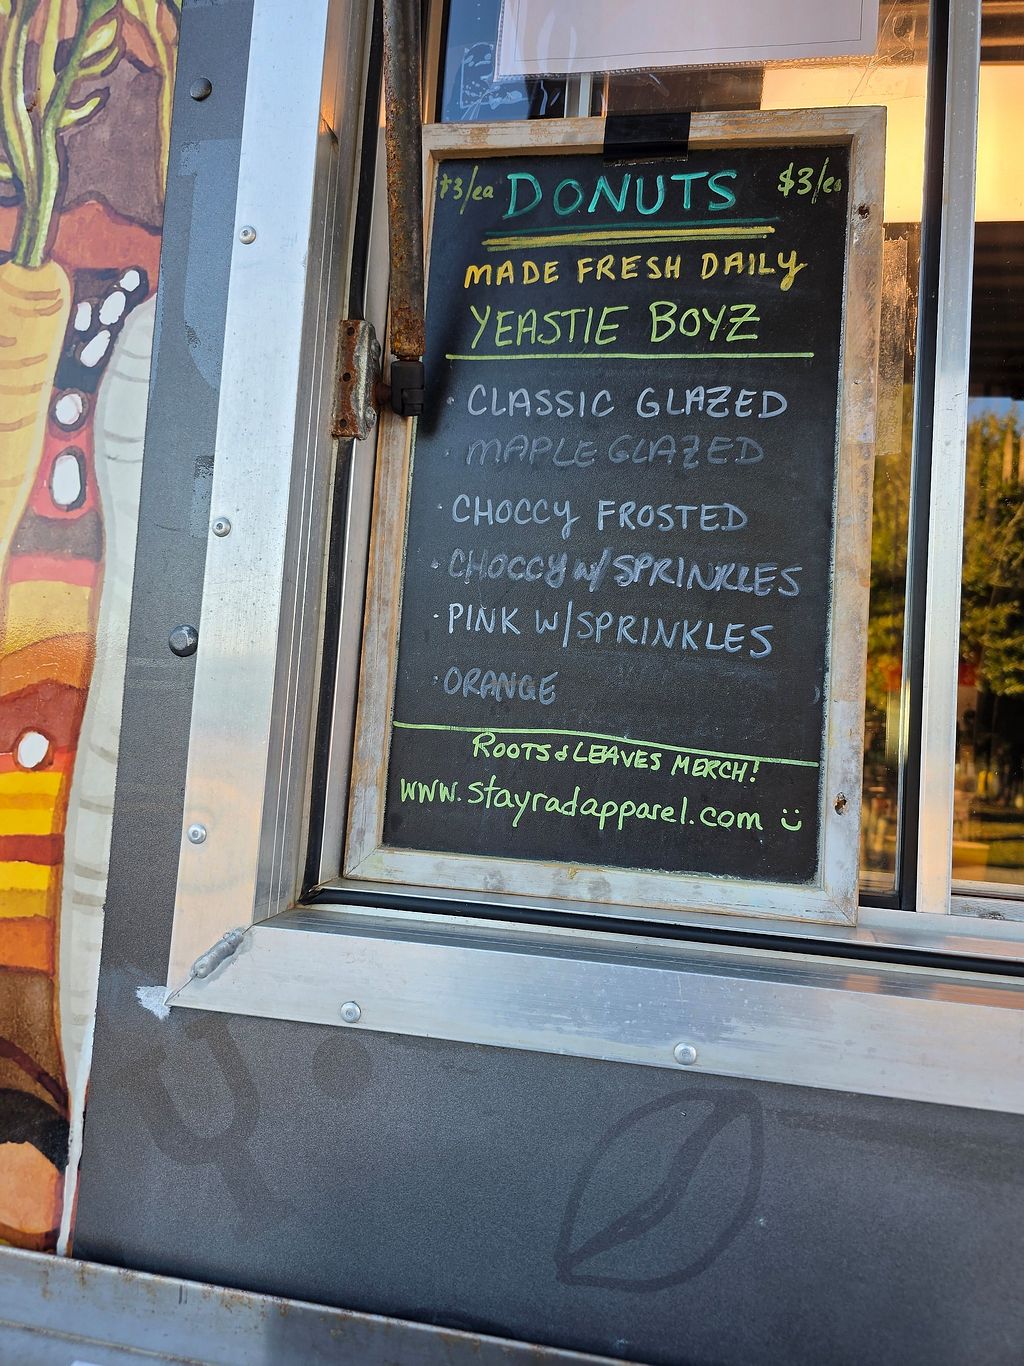 $3/ea DONUTS $3/ea
MADE FRESH DAILY
YEASTIE BOYZ
· CLASSIC GLAZED
· MAPLE GLAZED
· CHOCCY FROSTED
· CHOCCY w/SPRINKLES
· PINK W/SPRINKLES
· ORANGE
ROOTS & LEAVES MERCH!
www.stayradapparel.com